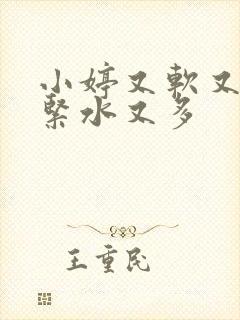 小婷又軟又
緊水又多
王重民